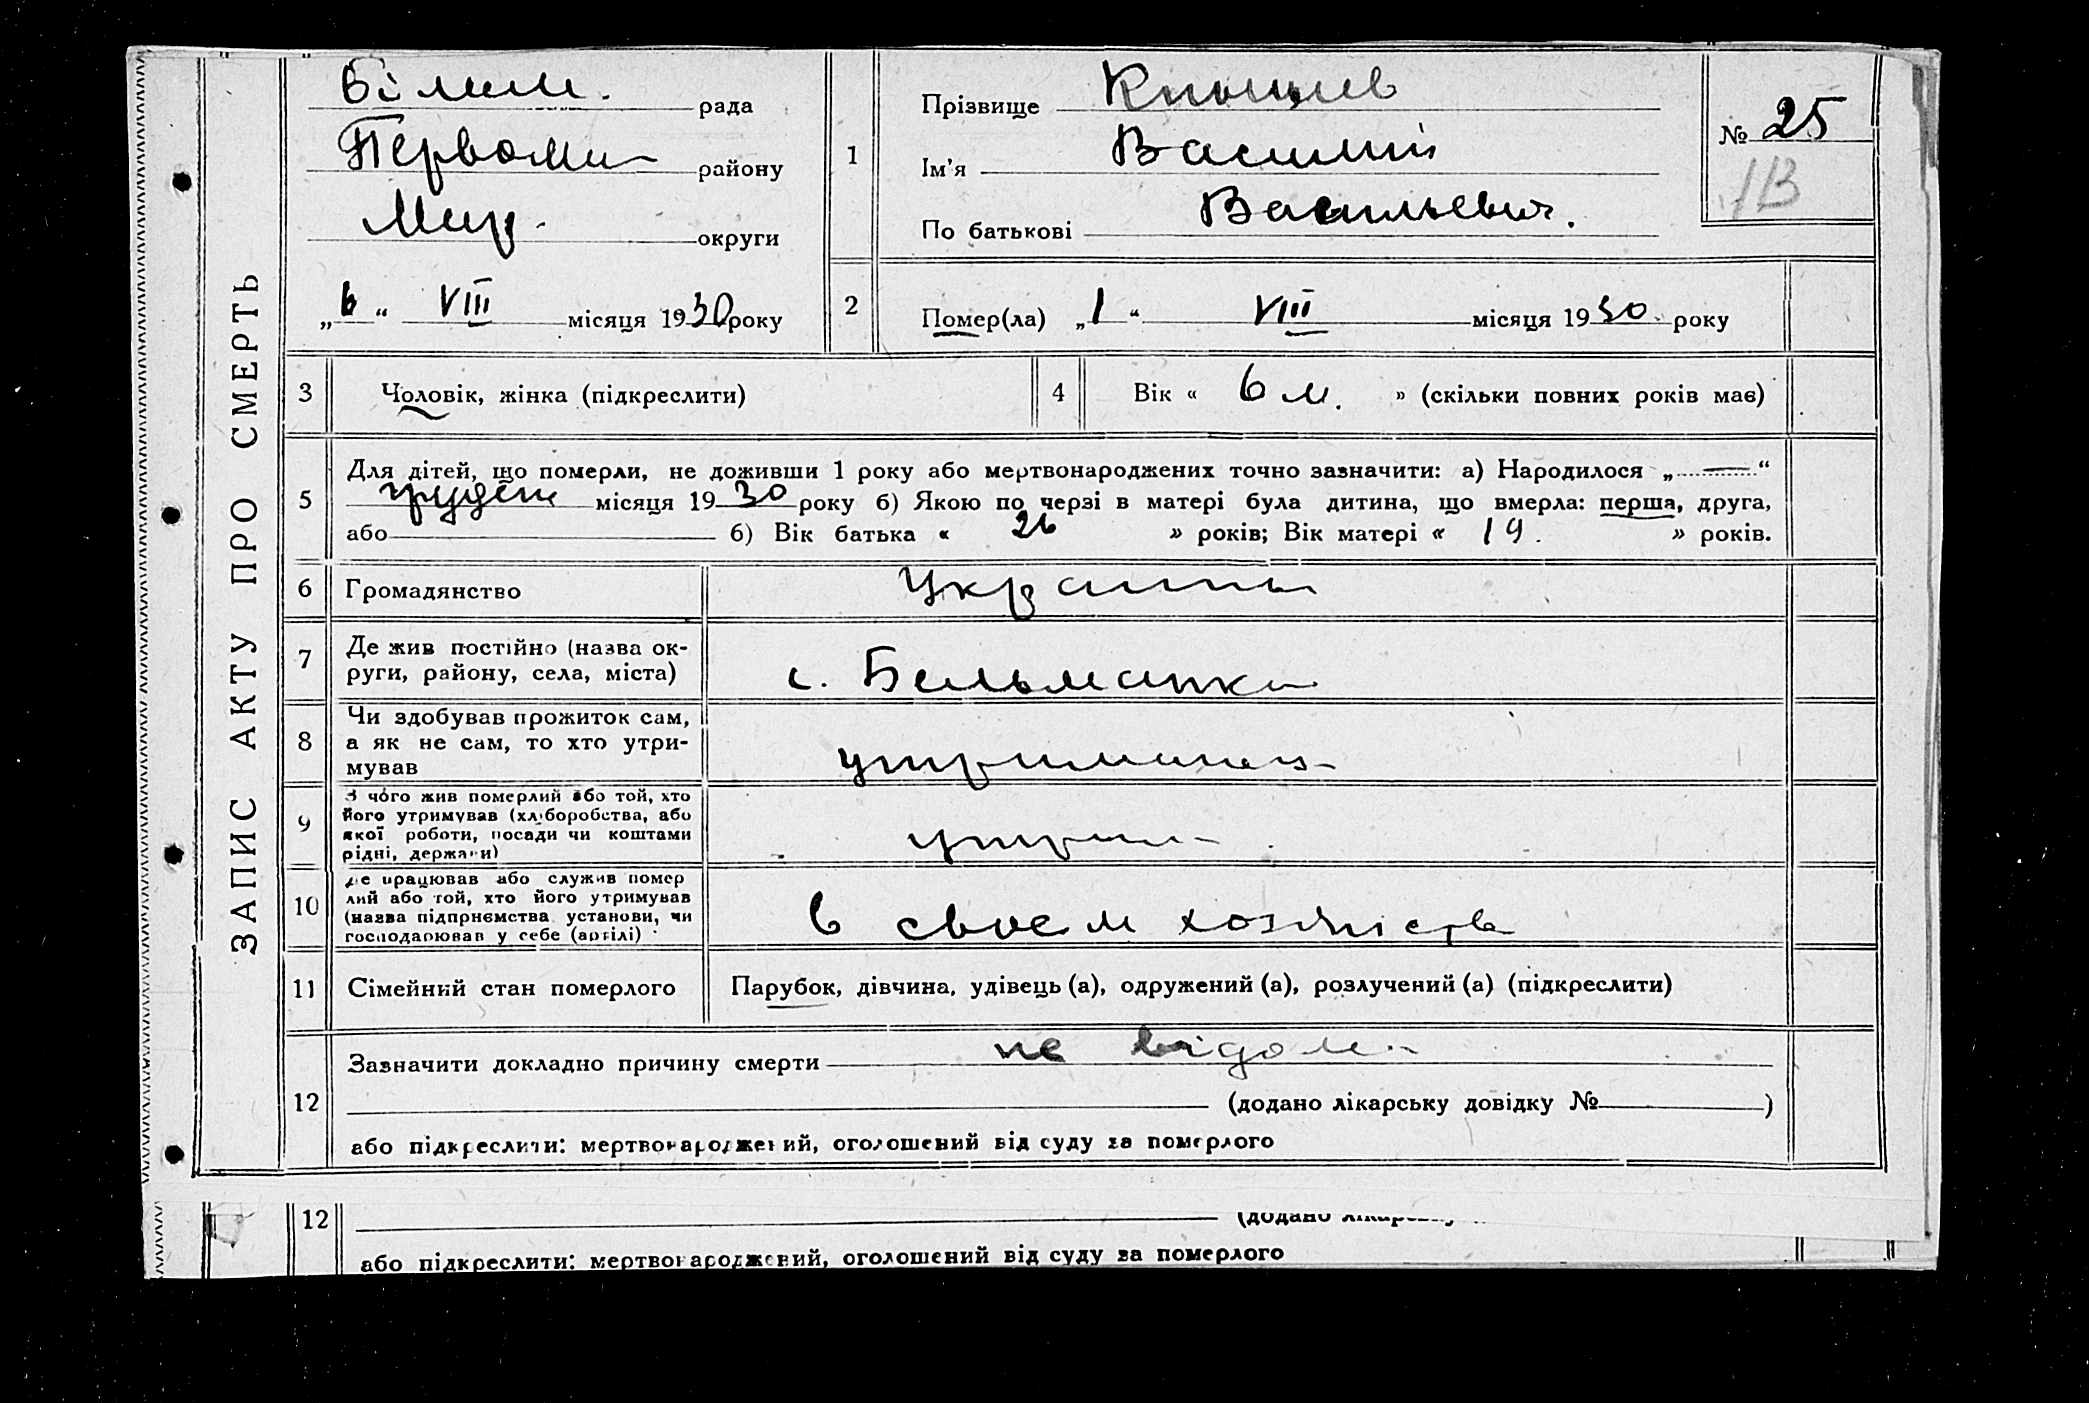 ЗАПИС АКТУ ПРО СМЕРТЬ
рада
Первом. району
округи
„6“ VIII місяця 1930 року
1
Прізвище
Ім'я Василий
По батькові Васильевич.
№ 25
1В
2
Помер(ла) „1“ VIII місяця 1930 року
3
Чоловік, жінка (підкреслити)
4
Вік « 6 м. » (скільки повних років має)
5
Для дітей, що померли, не доживши 1 року або мертвонароджених точно зазначити: а) Народилося „—“
грудень місяця 1930 року б) Якою по черзі в матері була дитина, що вмерла: перша, друга,
або б) Вік батька « 26 » років; Вік матері « 19. » років.
6
Громадянство
7
Де жив постійно (назва ок-
руги, району, села, міста)
с. Бельманка
8
Чи здобував прожиток сам,
а як не сам, то хто утри-
мував
утриманец
9
З чого жив померлий або той, хто
його утримував (хліборобства, або
якої роботи, посади чи коштами
рідні, держави)
утрим
10
Де працював або служив помер
лий або той, хто його утримував
(назва підприємства установи, чи
господарював у себе (артілі)
в своем хозяйстве
11
Сімейний стан померлого
Парубок, дівчина, удівець (а), одружений (а), розлучений (а) (підкреслити)
12
Зазначити докладно причину смерти не відома
(додано лікарську довідку № )
або підкреслити: мертвонароджений, оголошений від суду за померлого
12
(додано
або підкреслити: мертвонароджений, оголошений від суду за померлого